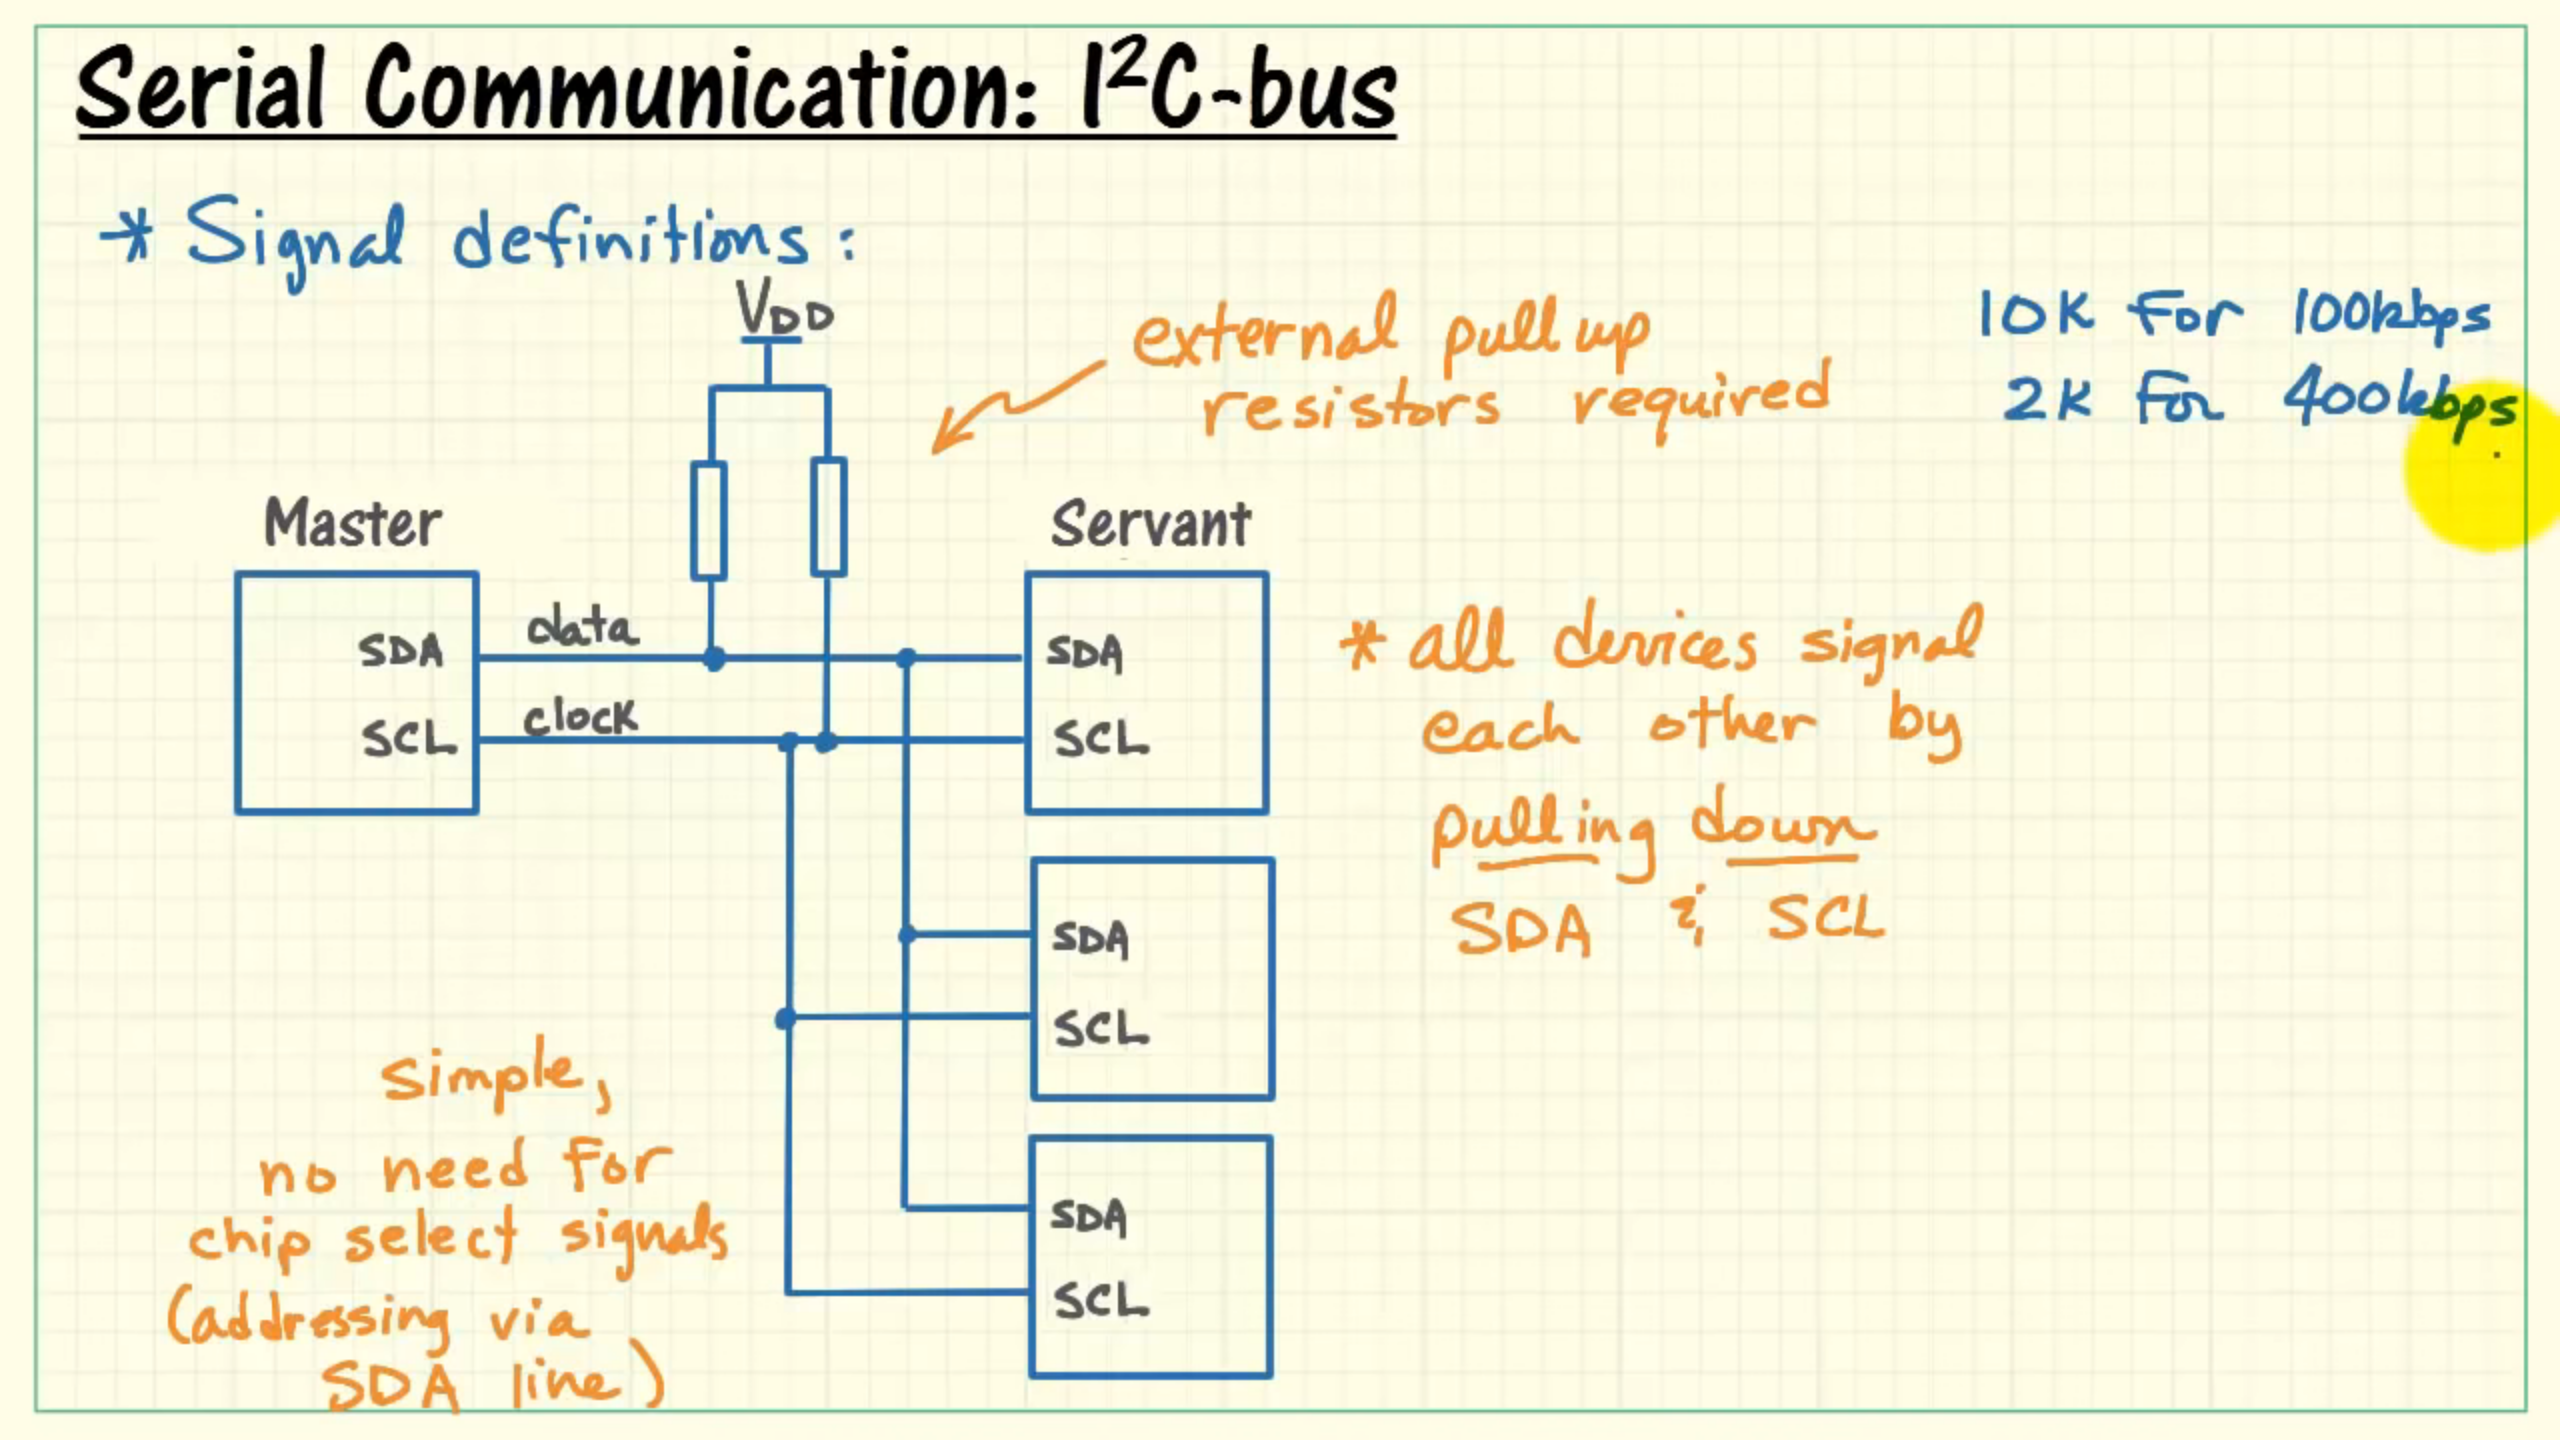 Serial Communication: I²C-bus
* Signal definitions:
VDD
external pull up
resistors required
10K for 100kbps
2K for 400kbps
Master
Servant
SDA
data
SCL
clock
SDA
SCL
* all devices signal
each other by
pulling down
SDA & SCL
SDA
SCL
simple,
no need for
chip select signals
(addressing via
SDA line)
SDA
SCL